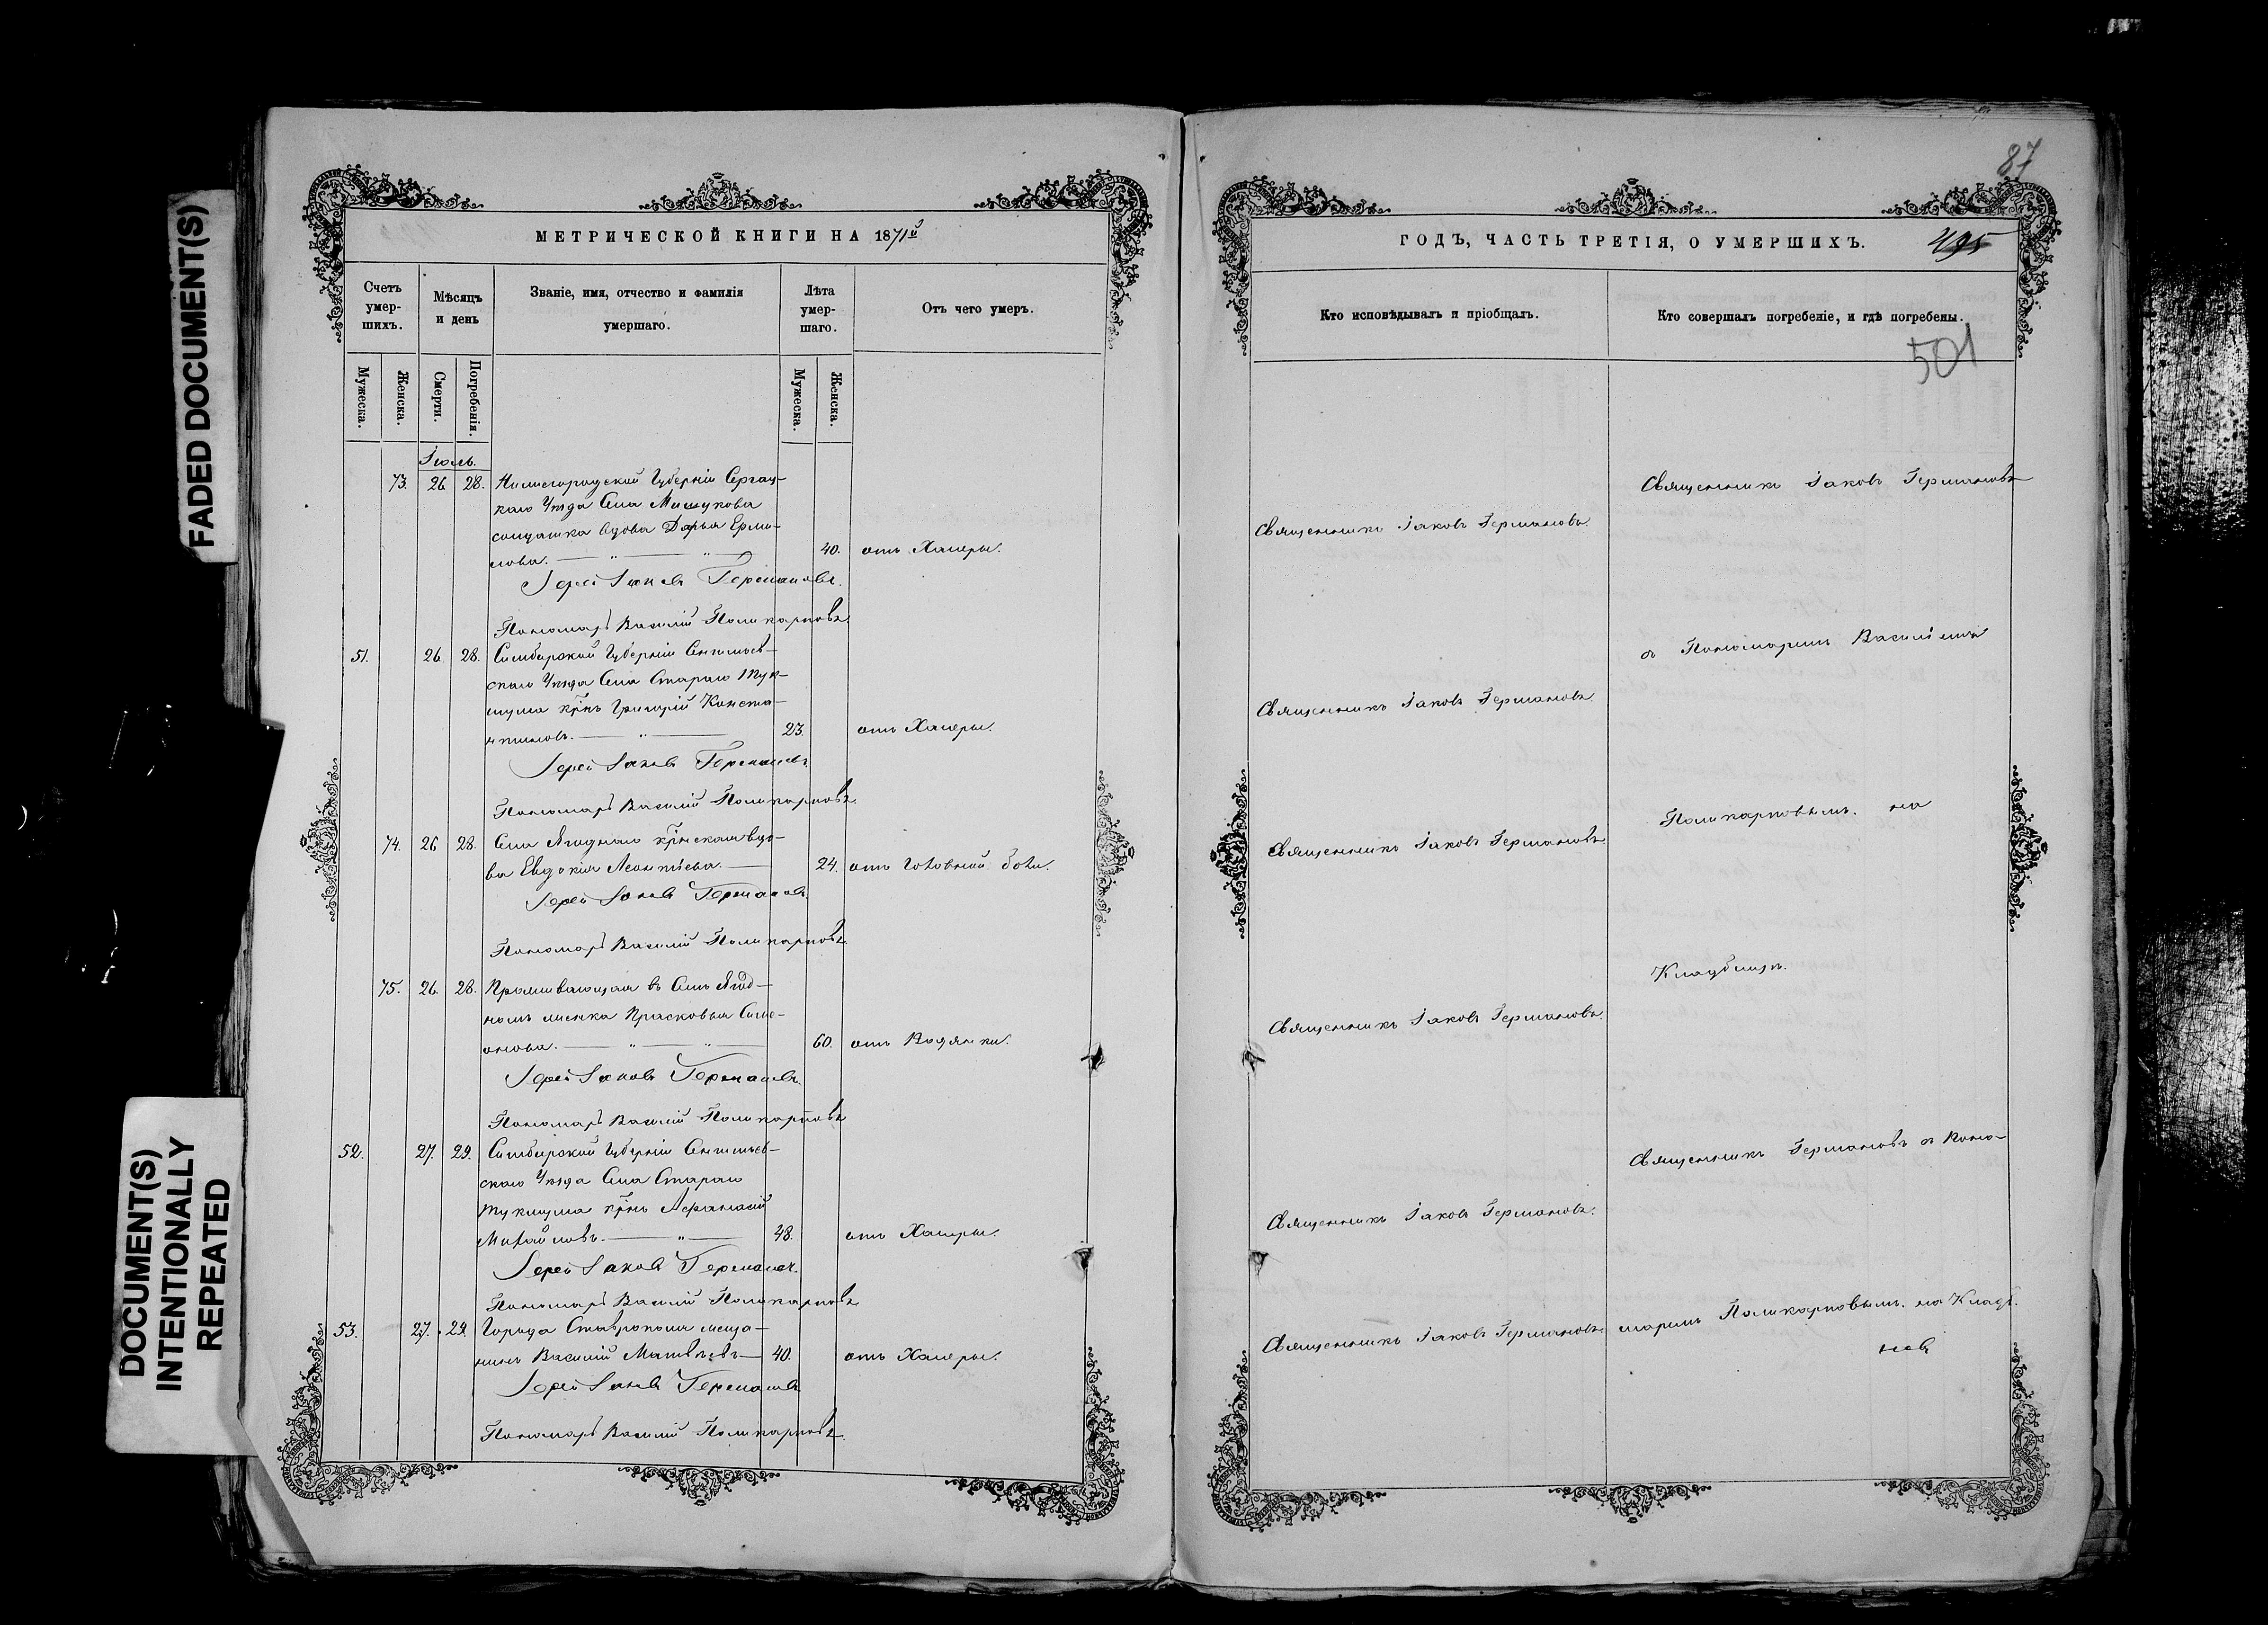 FADED DOCUMENT(S)
DOCUMENT(S)
INTENTIONALLY
REPEATED
МЕТРИЧЕСКОЙ КНИГИ НА 1871й
Счетъ
умер-
шихъ.
Мѣсяцъ
и день
Званіе, имя, отчество и фамилія
умершаго.
Лѣта
умер-
шаго.
Отъ чего умеръ.
Мужеска.
Женска.
Смерти.
Погребенія.
Мужеска.
Женска.
Іюль.
73. 26 28. Нижегородской Губерніи Сергач-
каго Уѣзда Села Мишукова
солдатка вдова Дарья Ермо-
лова. 40. отъ Халеры.
Іерей Іаковъ Германовъ.
Пономарь Василій Поликарповъ.
51. 26 28. Симбирской Губерніи Сенгилеев-
скаго Уѣзда Села Стараго Тук-
шума крнъ Григорій Конста-
нтиновъ. 23. отъ Халеры.
Іерей Іаковъ Германовъ
Пономарь Василій Поликарповъ.
74. 26 28. Села Ягоднаго крнская вдо-
ва Евдокія Леонтьева. 24. отъ Головной боли.
Іерей Іаковъ Германовъ.
Пономарь Василій Поликарповъ.
75. 26. 28. Проживающая въ Селѣ Ягод-
номъ Прасковья Симе-
онова. 60. отъ Водянки.
Іерей Іаковъ Германовъ.
Пономарь Василій Поликарповъ
52. 27. 29. Симбирской Губерніи Сенгилеев-
скаго Уѣзда Села Стараго
Тукшума крнъ Афанасій
Михайловъ. 48. отъ Халеры.
Іерей Іаковъ Германовъ.
Пономарь Василій Поликарповъ
53. 27. 29. Города Ставрополя меща-
нинъ Василій Матвѣевъ 40. отъ Халеры.
Іерей Іаковъ Германовъ
Пономарь Василій Поликарповъ.
87
ГОДЪ, ЧАСТЬ ТРЕТІЯ, О УМЕРШИХЪ.
495
Кто исповѣдывалъ и пріобщалъ.
Кто совершалъ погребеніе, и гдѣ погребены.
501
Священникъ Іаковъ Германовъ
Священникъ Іаковъ Германовъ.
съ Пономаремъ Василіемъ
Священникъ Іаковъ Германовъ
Поликарповымъ. на
Священникъ Іаковъ Германовъ
Кладбищѣ.
Священникъ Іаковъ Германовъ.
Священникъ Германовъ съ Поно-
Священникъ Іаковъ Германовъ.
Священникъ Іаковъ Германовъ
маремъ Поликарповымъ. на Кладб.